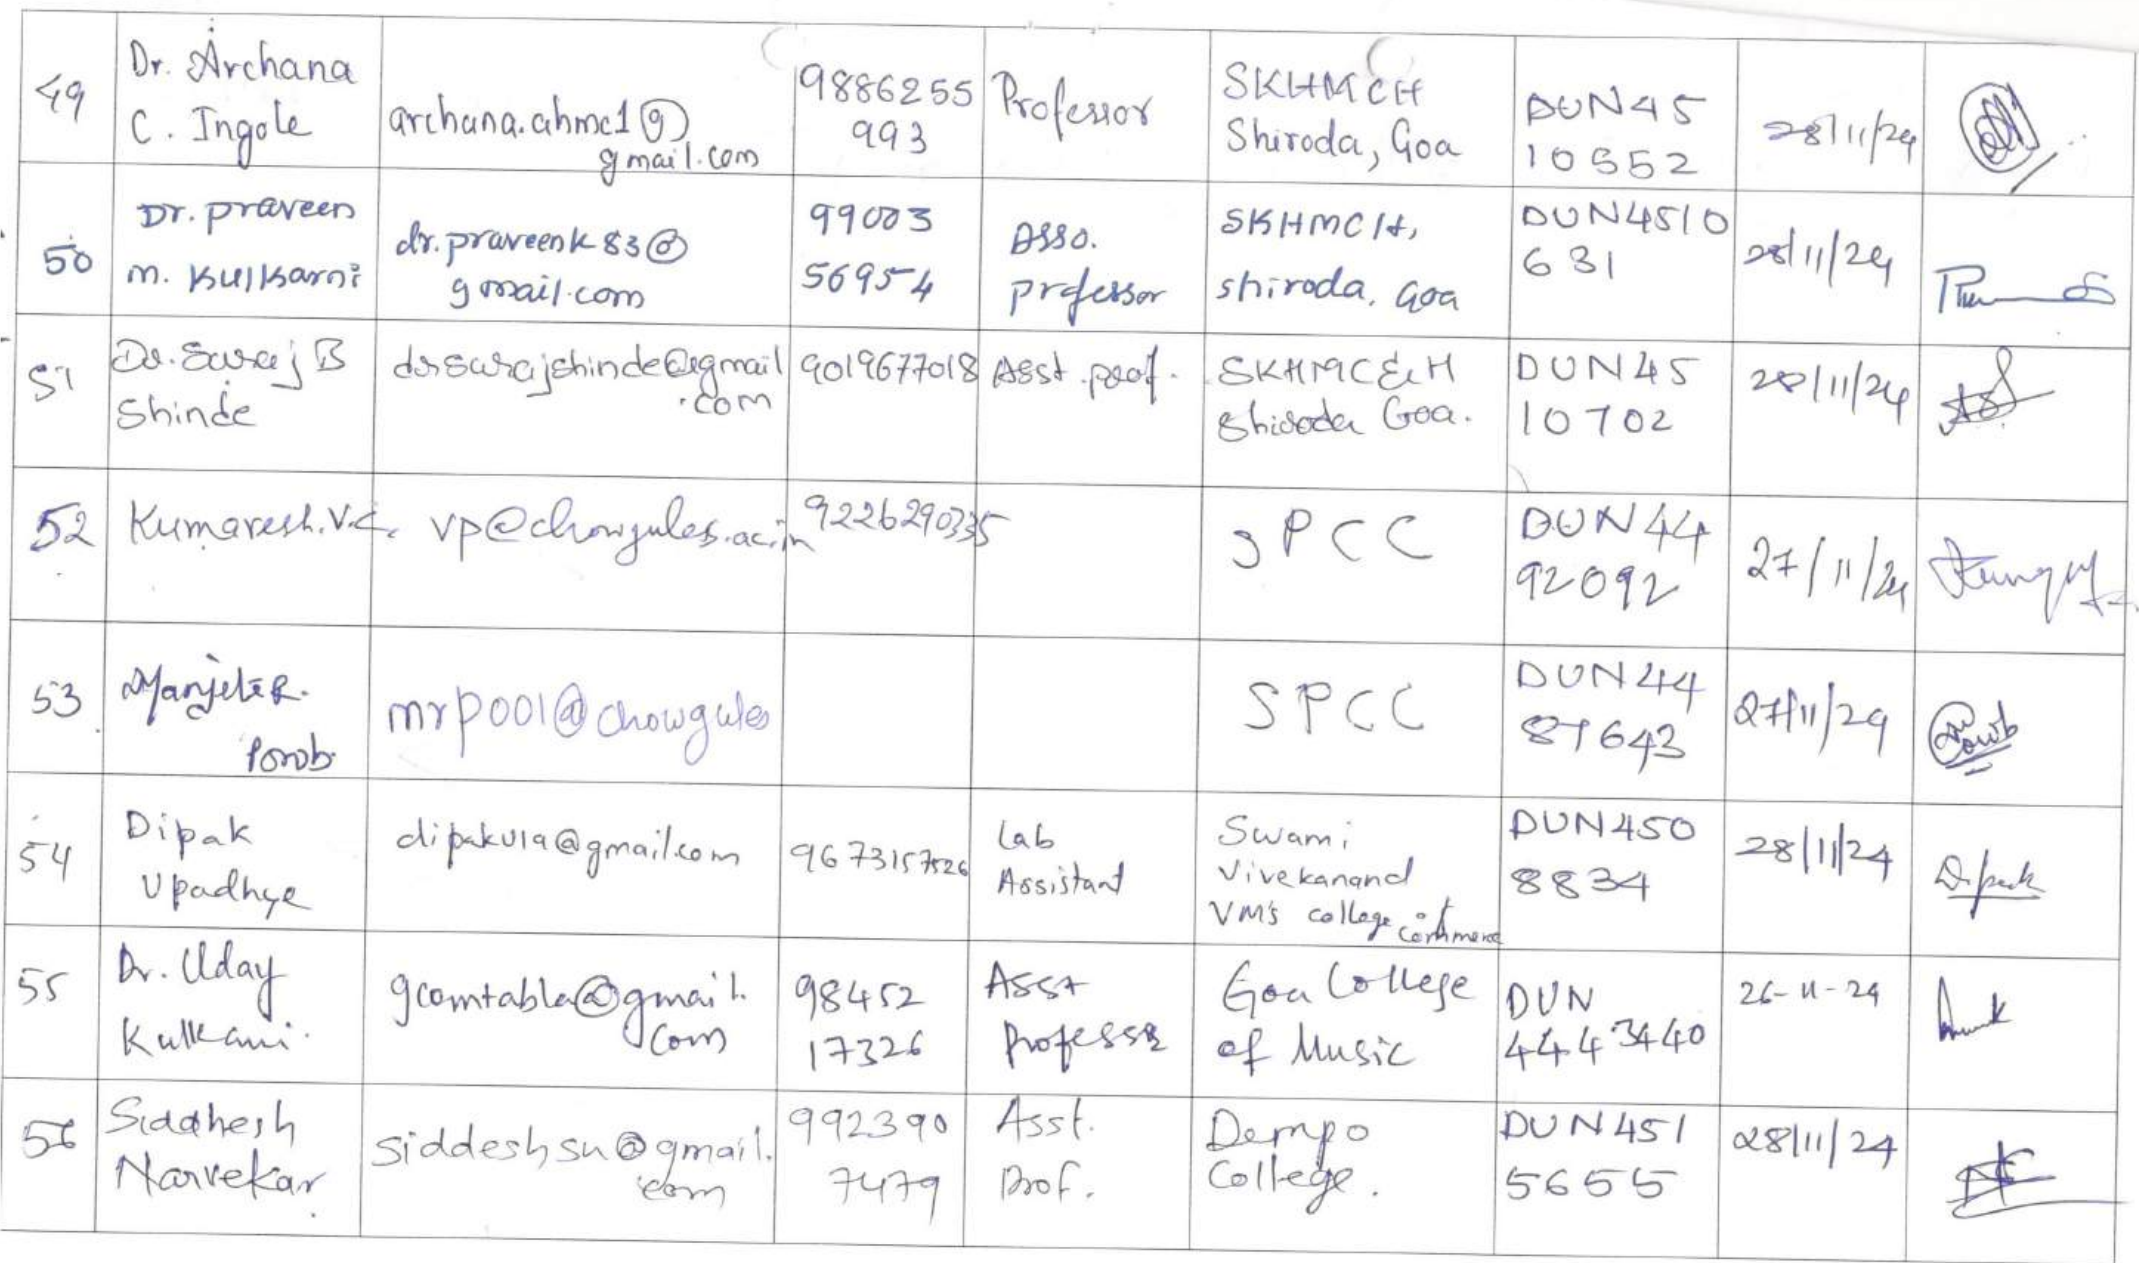 49 Dr. Archana C. Ingole archana.ahmc1@gmail.com 9886255993 Professor SKHMCH Shiroda, Goa DUN4510552 28/11/24
50 Dr. praveen m. Kulkarni dr.praveenk83@gmail.com 9900356954 Asso. professor SKHMCH, shiroda, Goa DUN4510631 28/11/24
51 Dr. Suraj B Shinde drsurajshinde@gmail.com 9019677018 Asst. prof. SKHMC&H Shiroda Goa. DUN4510702 28/11/24
52 Kumaresh.V.C. vp@chowgules.ac.in 9226290335 SPCC DUN4492092 27/11/24
53 Manjeta R. Porob mrp001@chowgules SPCC DUN4487643 27/11/24
54 Dipak Upadhye dipaku19@gmail.com 9673157526 Lab Assistant Swami Vivekanand VM's college of commerce DUN4508834 28/11/24 Dipak
55 Dr. Uday Kulkarni. gcomtabla@gmail.com 9845217326 Asst Professor Goa College of Music DUN4443440 26-11-24
56 Siddhesh Narvekar siddeshsn@gmail.com 9923907479 Asst. Prof. Dempo College. DUN4515655 28/11/24